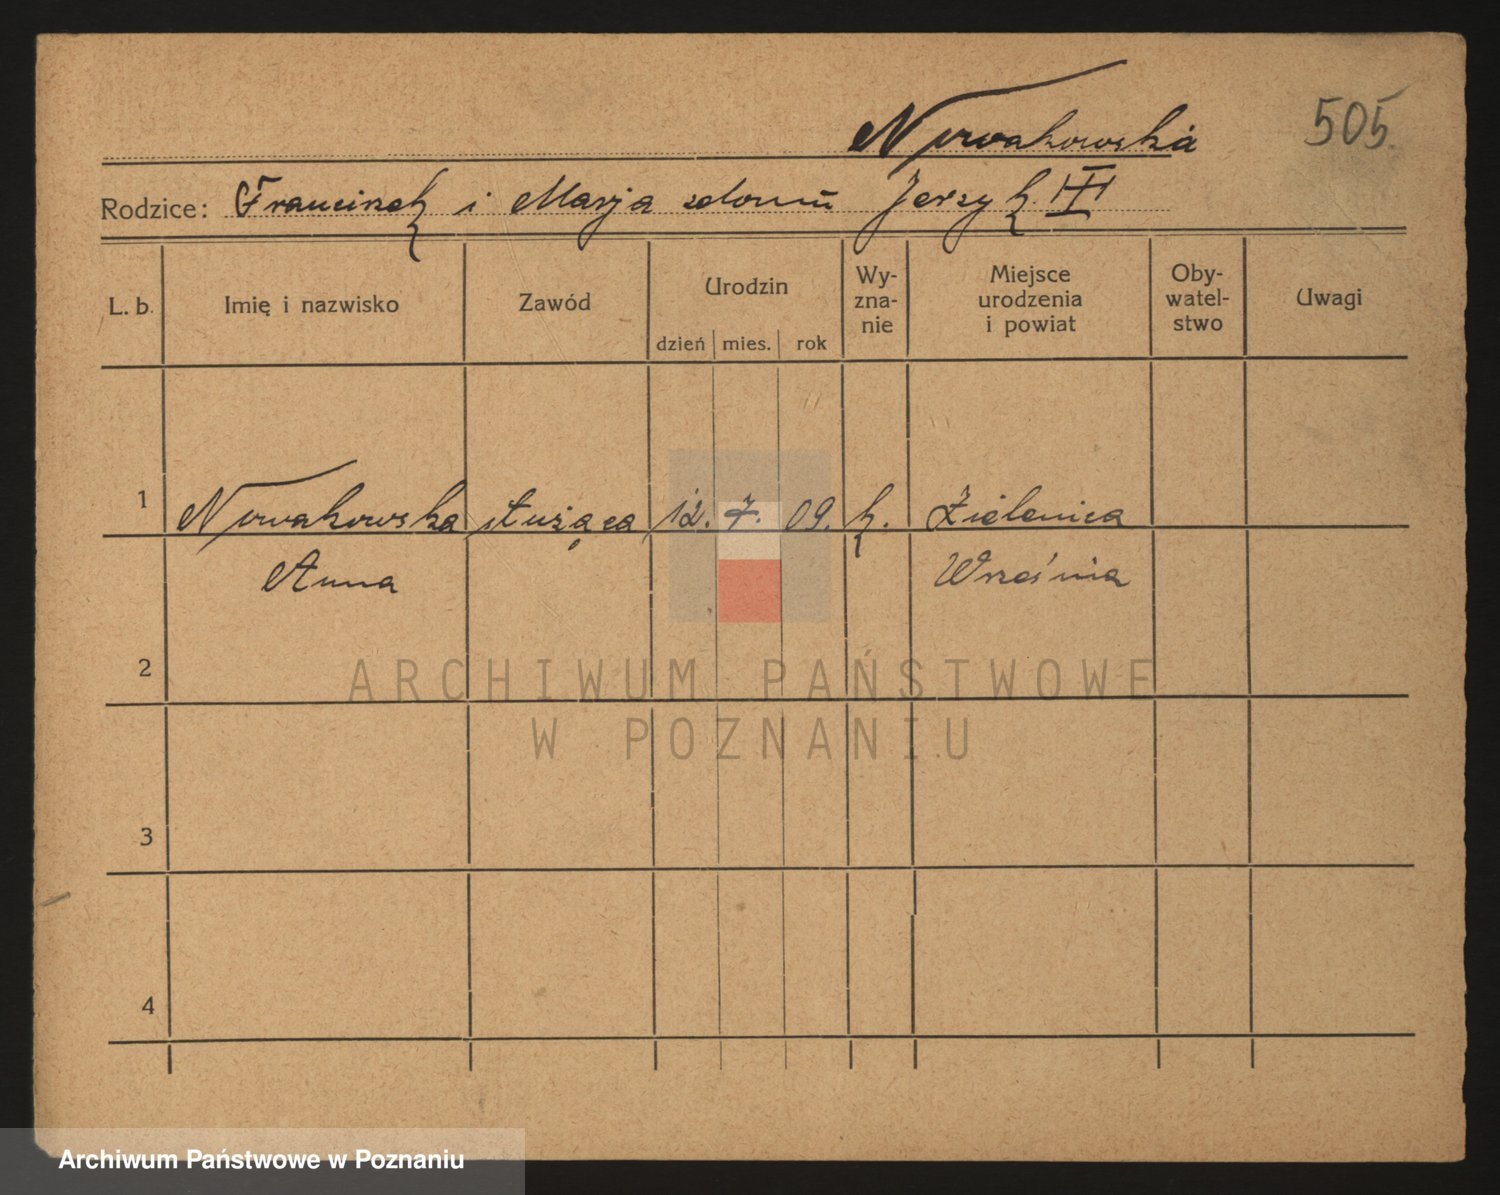 Nowakowska
505.
Rodzice: Franciszek i Marja z domu Jerzyk III
L. b. Imię i nazwisko Zawód Urodzin dzień mies. rok Wy-zna-nie Miejsce urodzenia i powiat Oby-watel-stwo Uwagi
1 Nowakowska służąca 12. 7. 09. k. Zielenica
Anna Września
2
ARCHIWUM PAŃSTWOWE
W POZNANIU
3
4
Archiwum Państwowe w Poznaniu